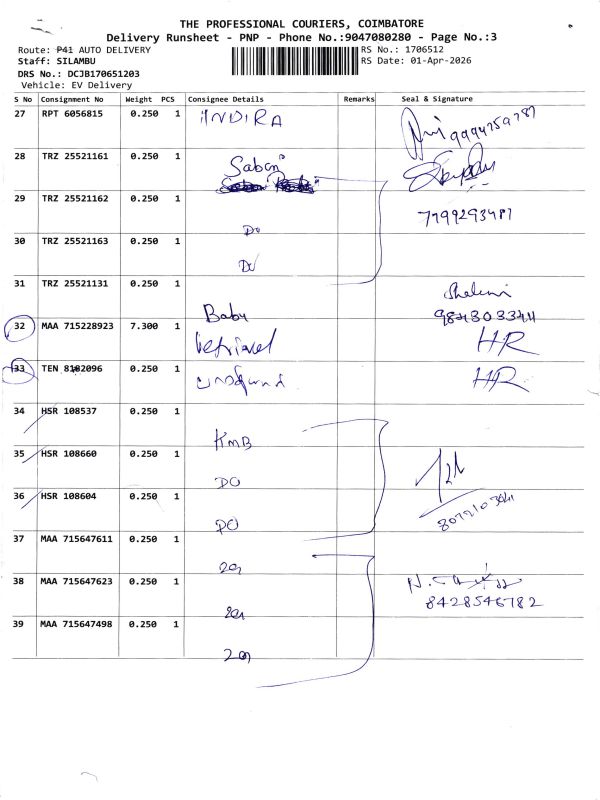 THE PROFESSIONAL COURIERS, COIMBATORE
Delivery Runsheet - PNP - Phone No.:9047080280 - Page No.:3
Route: P41 AUTO DELIVERY
RS No.: 1706512
Staff: SILAMBU
RS Date: 01-Apr-2026
DRS No.: DCJB170651203
Vehicle: EV Delivery
S No Consignment No Weight PCS Consignee Details Remarks Seal & Signature
27 RPT 6056815 0.250 1 INDIRA
28 TRZ 25521161 0.250 1 Sabari
29 TRZ 25521162 0.250 1 Do 7799293487
30 TRZ 25521163 0.250 1 Do
31 TRZ 25521131 0.250 1 Baby 9843033411
32 MAA 715228923 7.300 1 HR
33 TEN 8182096 0.250 1 HR
34 HSR 108537 0.250 1 KMB
35 HSR 108660 0.250 1 DO
36 HSR 108604 0.250 1 DO
37 MAA 715647611 0.250 1
38 MAA 715647623 0.250 1 8428546782
39 MAA 715647498 0.250 1